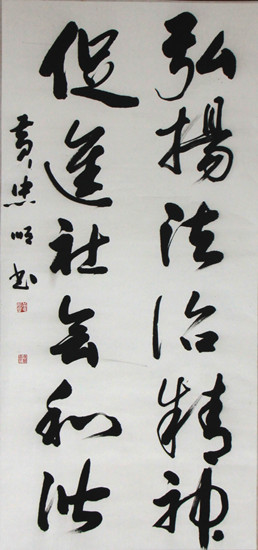 弘揚法治精神
促進社会和谐
黄忠明书